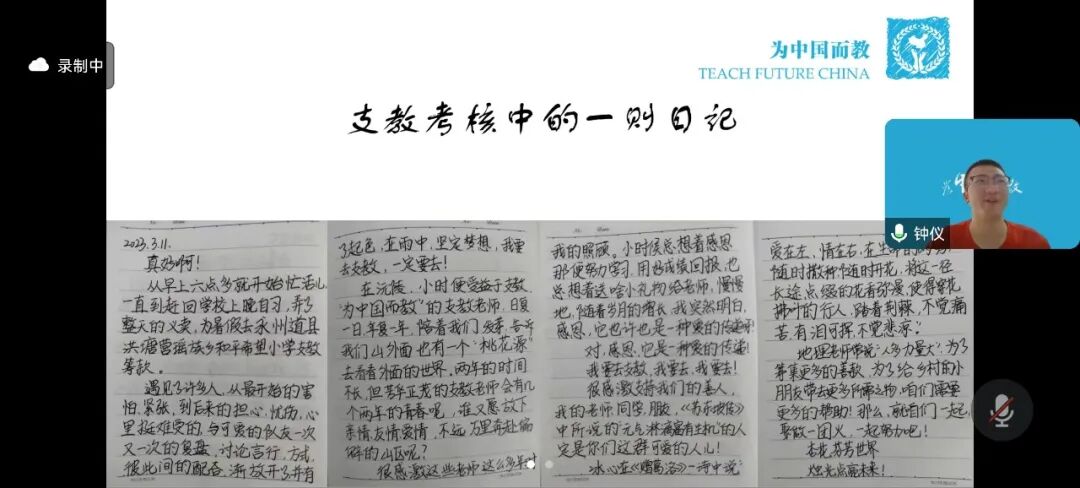 录制中
为中国而教
TEACH FUTURE CHINA
支教考核中的一则日记
钟仪
2023.3.11.
真好啊!
从早上六点多就开始忙活儿
一直到赶回学校上晚自习,弄了
整天的义卖,为暑假去永州道县
洪塘营瑶族乡和平希望小学支教
筹款。
遇见了许多人,从最开始的害
怕、紧张,到后来的担心,忧伤,心
里挺难受的,与可爱的队友一次
又一次的复盘,讨论言行,方式,
彼此间的配合,渐放开了并有
了起色,在雨中,坚定梦想,我要
去支教,一定要去!
在沅陵,小时便受益于支教
"为中国而教"的支教老师,日复
一日,年复一年,陪着我们
我们山外面也有一个"桃花源"
去看看外面的世界,两年的时间
不长,但芳华正茂的支教老师会有几
个两年的青春呢,谁又愿放下
亲情友情爱情,不远万里奔赴偏
僻的山区呢?
很感激这些老师这么多年对
我的照顾。小时候总想着感恩
那便努力学习,用好成绩回报,也
总想着送啥小礼物给老师,慢慢
地,随着岁月的增长,我突然明白,
感恩,它也许也是一种爱的传递呀!
对,感恩,它是一种爱的传递!
我要去支教,我要去,我要去!
很感激支持我们的善人,
我的老师,同学,朋友,
中所说的"元气淋漓富有生机"的人
定是你们这群可爱的人儿!
冰心在一诗中说"
爱在左,情在右,在生命的两旁,
随时撒种,随时开花,将这一径
长途点缀的花香弥漫,使得穿花
拂叶的行人,踏着荆棘,不觉痛
苦,有泪可挥,不觉悲凉。"
地理老师常说"人多力量大",为了
筹集更多的善款,为了给乡村的小
朋友带去更多所需之物,咱们需要
更多的帮助!那么,就咱们一起,
聚做一团火,一起努力吧!
杏花芬芳世界
烛光点亮未来!